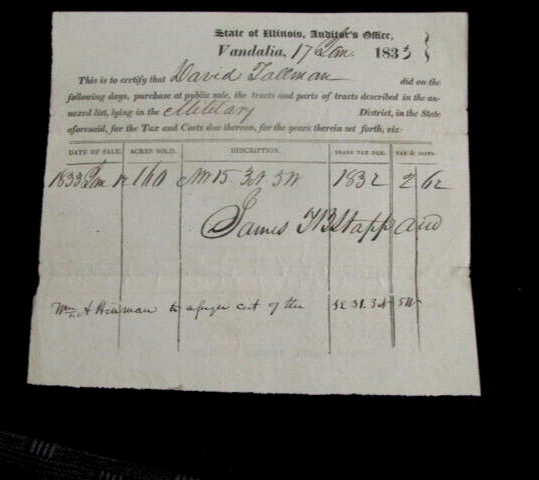 State of Illinois, Auditor's Office,
Vandalia, 17 Jan. 1833
This is to certify that David Tallman did on the
following days, purchase at public sale, the tracts and parts of tracts described in the an-
nexed list, lying in the Military District, in the State
aforesaid, for the Tax and Costs due thereon, for the years therein set forth, viz:
DATE OF SALE. ACRES SOLD. DESCRIPTION. YEARS TAX DUE. TAX & COSTS.
1833 Jan 160 NW 15. 3N 5W 1832 2 62
James T B Stapp aud
Wm A Hinman to a forger cert of the SE 31. 3N 5W